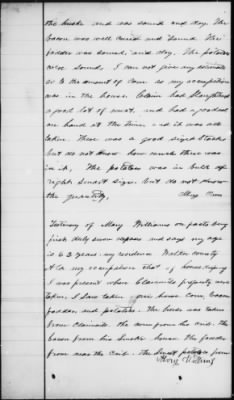 the husk and was sound and dry. The
bacon was well cured and sound. The
fodder was sound and dry. The potatoes
were sound, I can not give any estimate
as to the amount of Corn as my occupation
was in the house. Claim had Slaughtered
a good lot of meat, and had a good deal
on hand at the time, and it was all
taken. There was a good sized stack
but do not know how much there was
in it, The potatoes was in bulk of
right smart size, but do not know
the quantity,
Mary
Testimony of Mary Williams on facts being
first duly sworn deposes and says my age
is 63 years my residence Walker County
Ala my occupation that of housekeeping
I was present when Claimants property was
taken, I Saw taken horse Corn, bacon
fodder and potatoes. The horse was taken
from Claimants the corn from his crib. The
bacon from his Smoke house the fodder
from near the Crib. The Sweet potatoes from
Mary Williams